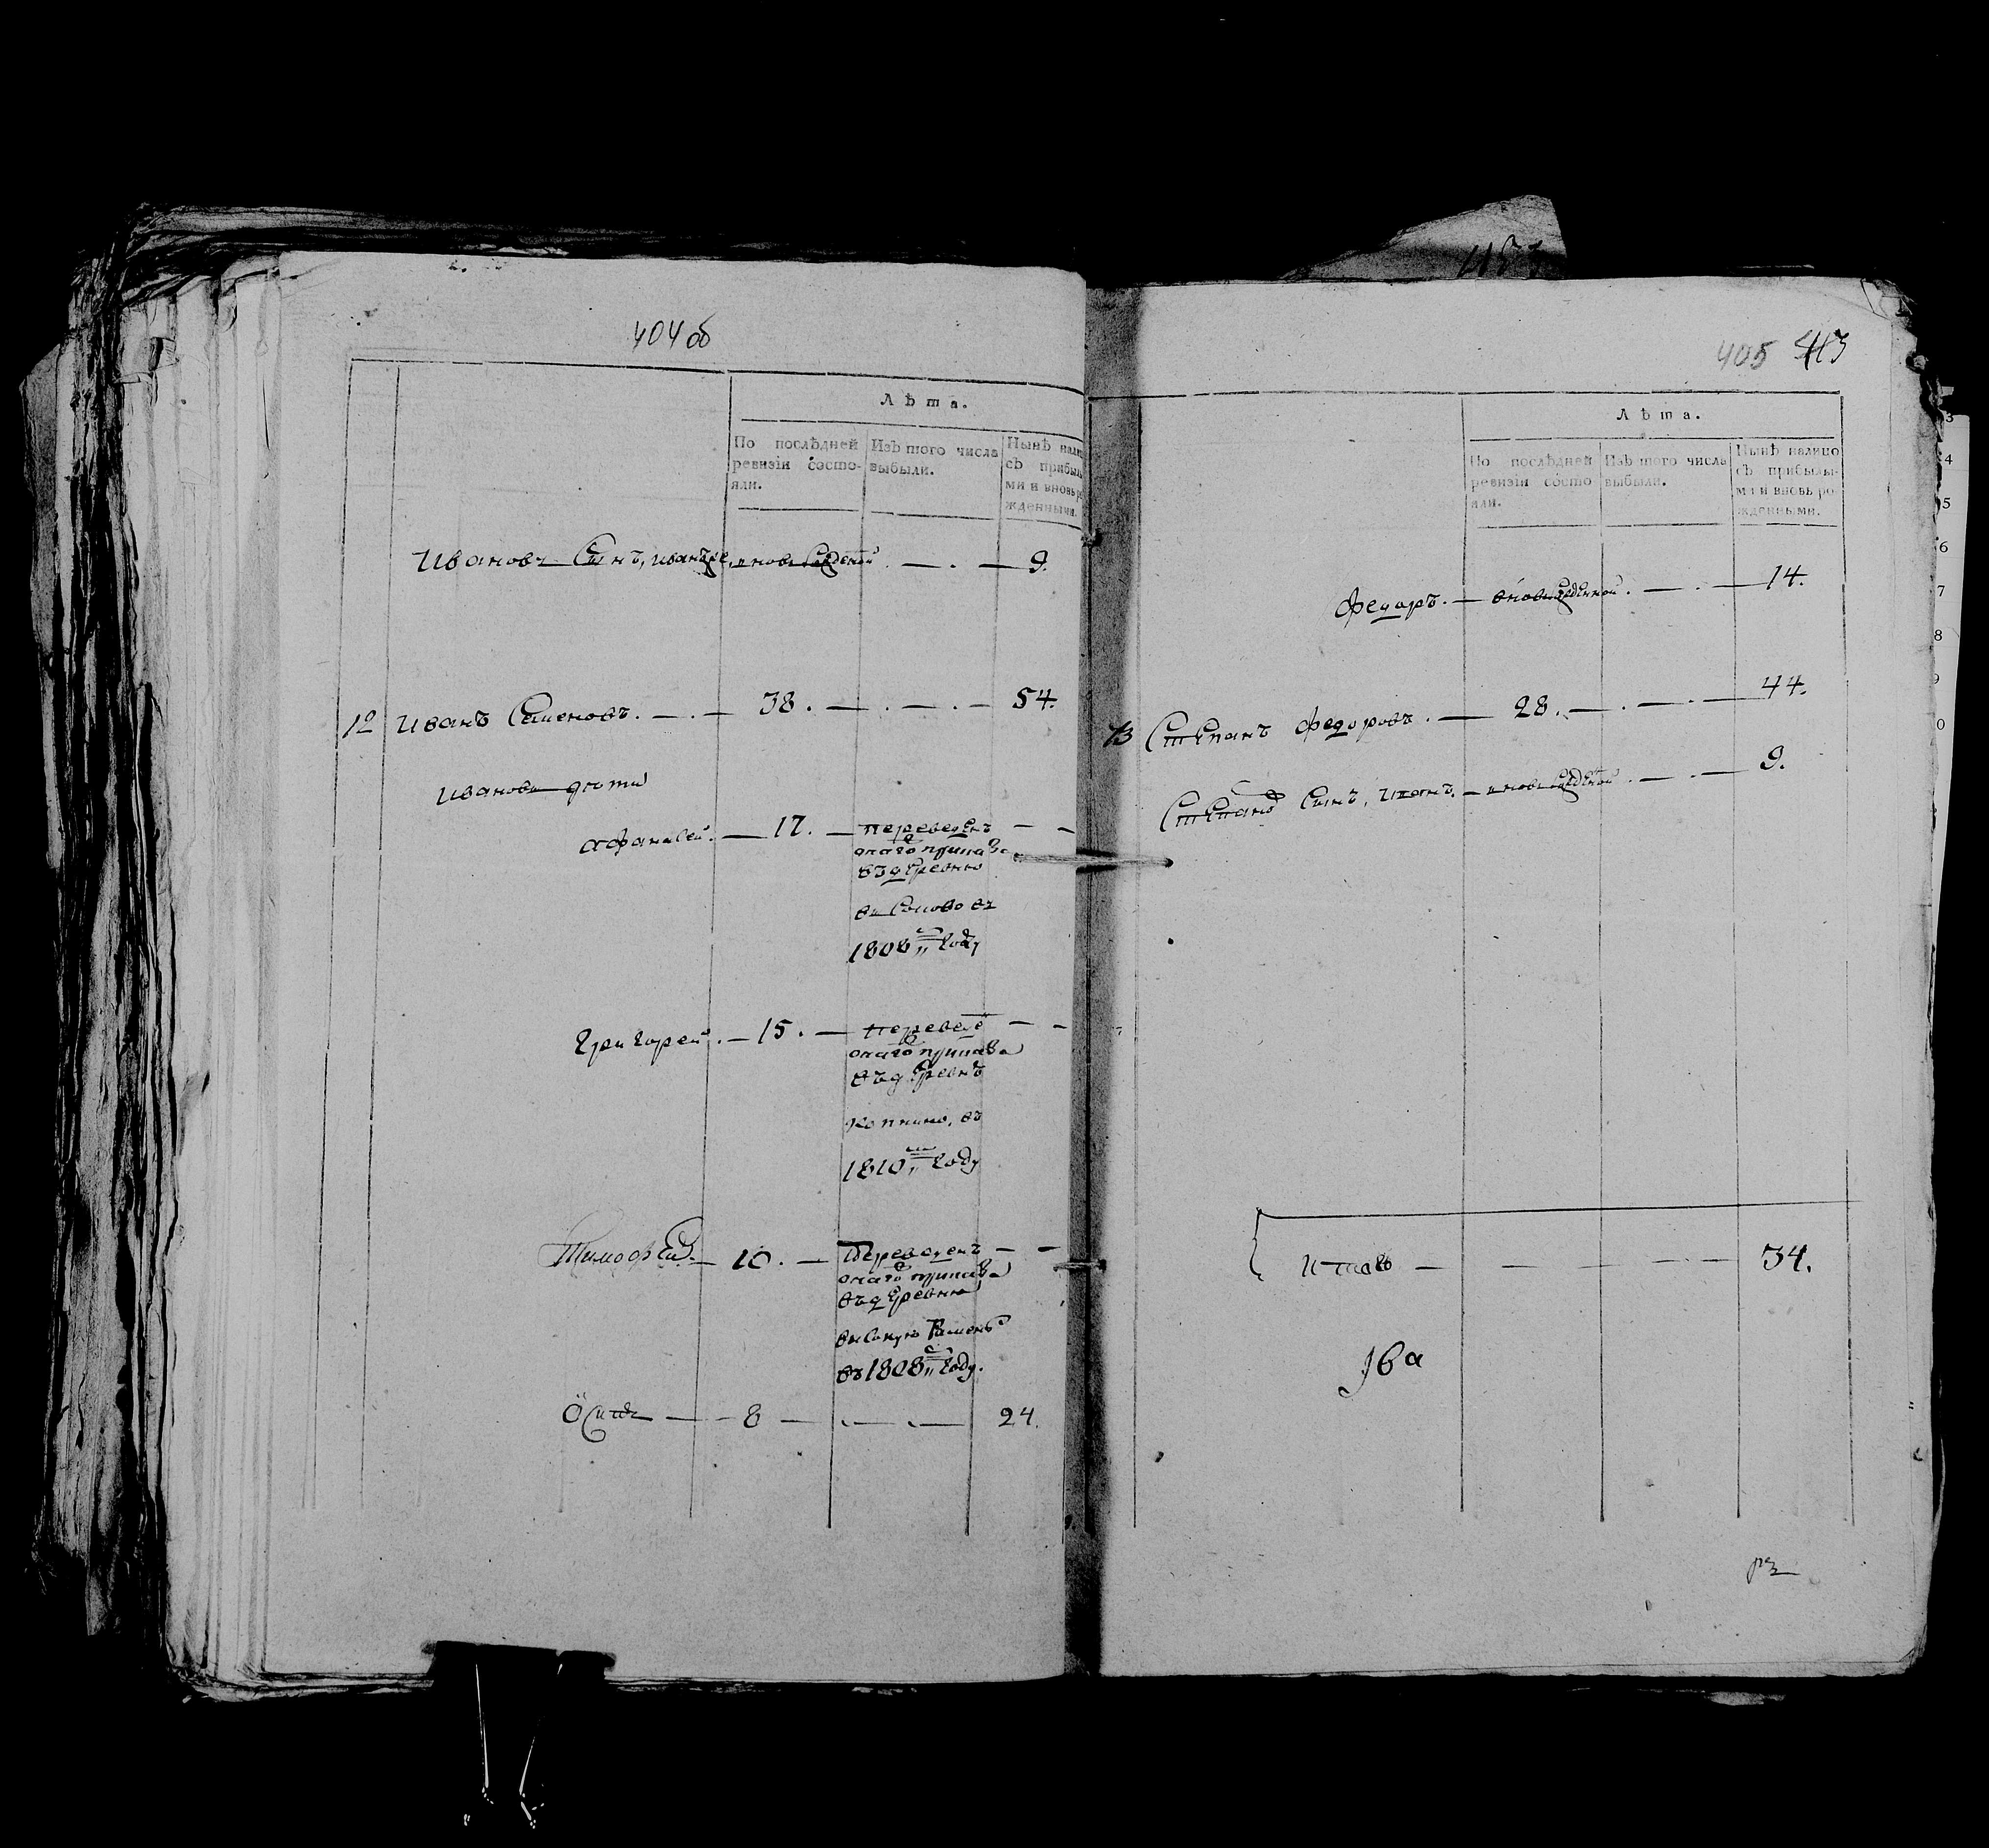 404 об
Лѣта.
По послѣдней
ревизіи состо-
яли.
Изъ того числа
выбыли.
Нынѣ нали
съ прибыл
ми и вновь р
жденными.
Ивановъ Сынъ, вновь рожденной 9.
12 Иванъ Семеновъ. 38. 54.
Ивановы дѣти
Афанасей. 17. переведенъ
онаго приказа
въ деревню
въ
году
Григорей. 15. переведе
онаго приказа
въ деревнѣ
въ
1810м году
Тимофей. 10. переведенъ
онаго приказа
въ деревню
въ 1808м году.
Осипъ 8 24.
405 413
Лѣта.
По послѣдней
ревизіи состо
яли.
Изъ того числа
выбыли.
Нынѣ налицо
съ прибылы-
ми и вновь ро
жденными.
Федаръ. вновь рожденной. 14.
13 Степанъ Федоровъ. 28. 44.
Степановъ Сынъ, вновь рожденной 9.
Итого 34.